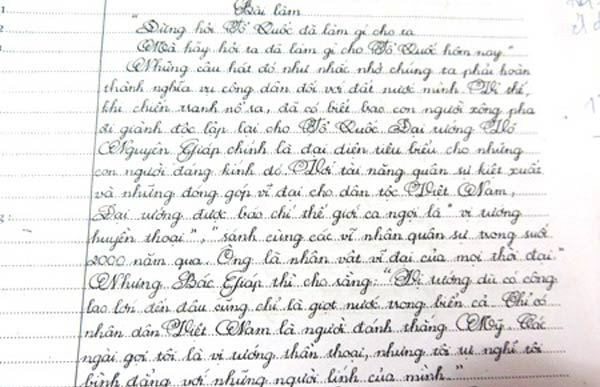 Bài làm
"Đừng hỏi Tổ Quốc đã làm gì cho ta
Mà hãy hỏi ta đã làm gì cho Tổ Quốc hôm nay"
Những câu hát đó như nhắc nhở chúng ta phải hoàn
thành nghĩa vụ công dân đối với đất nước mình. Vì thế,
khi chiến tranh nổ ra, đã có biết bao con người xông pha
đi giành độc lập lại cho Tổ Quốc. Đại tướng Võ
Nguyên Giáp chính là đại diện tiêu biểu cho những
con người đáng kính đó. Với tài năng quân sự kiệt xuất
và những đóng góp vĩ đại cho dân tộc Việt Nam,
Đại tướng được báo chí thế giới ca ngợi là "vị tướng
huyền thoại", "sánh cùng các vĩ nhân quân sự trong suốt
2000 năm qua. Ông là nhân vật vĩ đại của mọi thời đại"
Nhưng Bác Giáp thì cho rằng: "Vị tướng dù có công
lao lớn đến đâu cũng chỉ là giọt nước trong biển cả. Chỉ có
nhân dân Việt Nam là người đánh thắng Mỹ. Các
ngài gọi tôi là vị tướng thần thoại, nhưng tôi tự nghĩ tôi
bình đẳng với những người lính của mình."